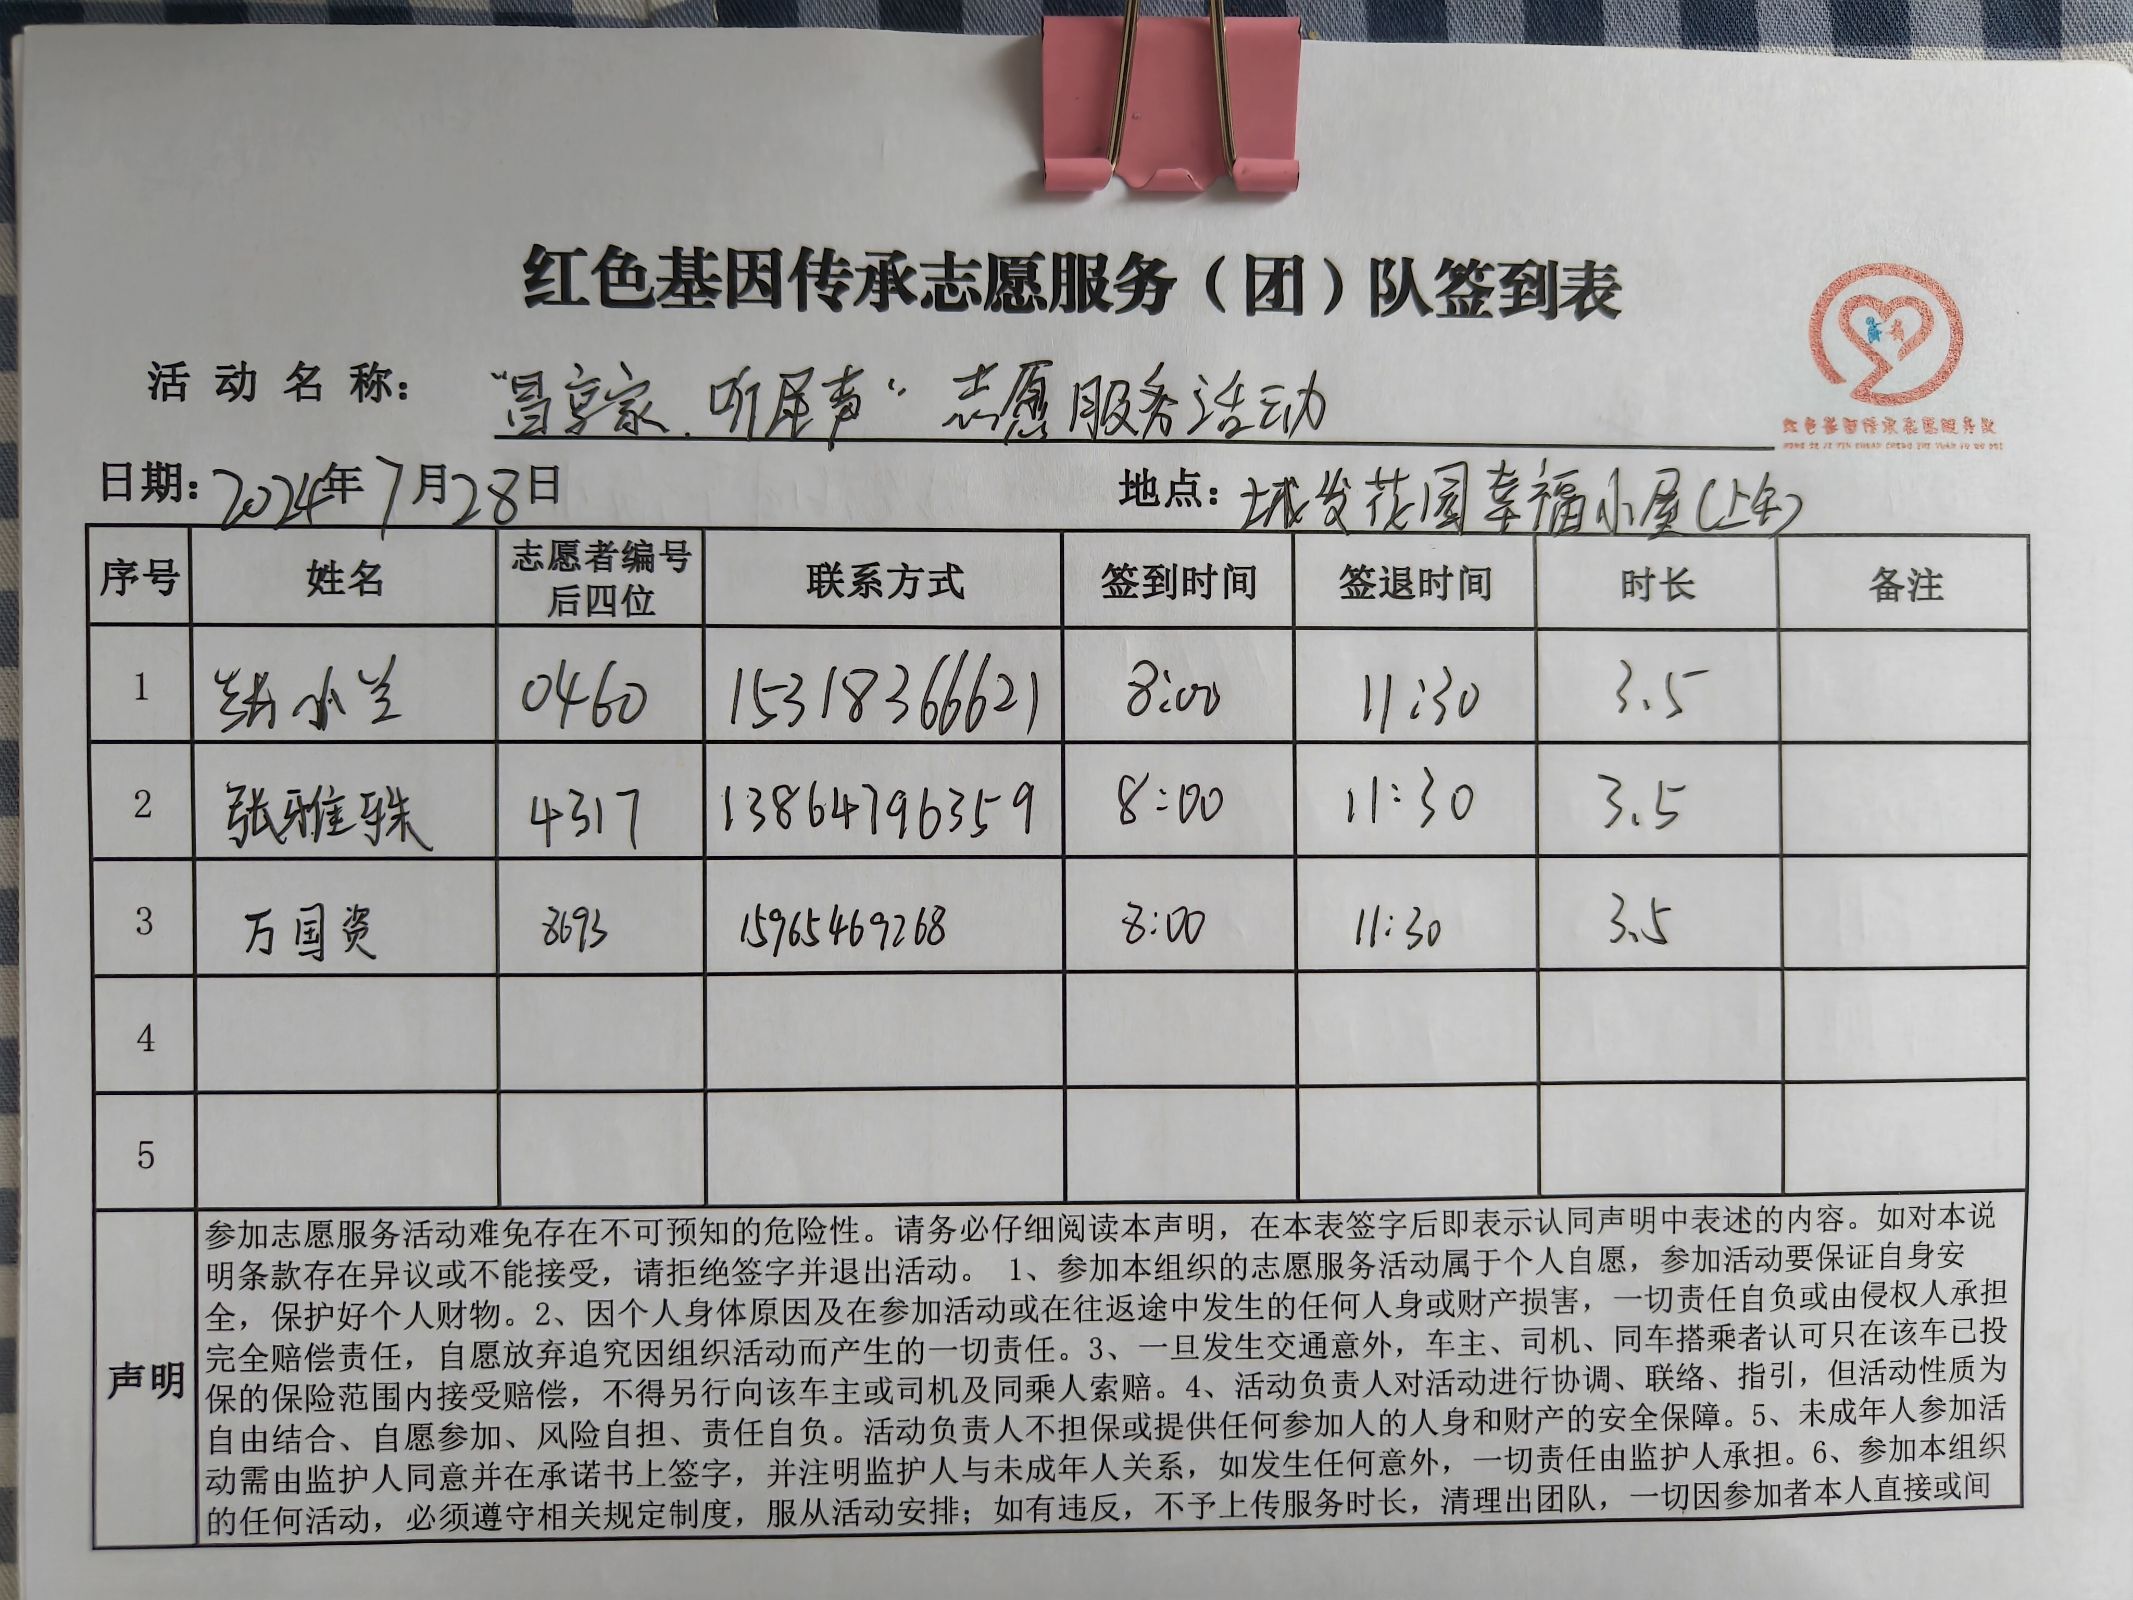 红色基因传承志愿服务（团）队签到表
活动名称： “昌享家.听居声”志愿服务活动
红色基因传承志愿服务队
HONG SE JI YIN CHUAN CHENG ZHI YUAN FU WU DUI
日期：2024年7月28日 地点：城发花园幸福小屋(上午)
序号 姓名 志愿者编号后四位 联系方式 签到时间 签退时间 时长 备注
1 小兰 0460 15318366621 8:00 11:30 3.5
2 张雅珠 4317 13864796359 8:00 11:30 3.5
3 万国资 8693 15965469268 8:00 11:30 3.5
4
5
声明
参加志愿服务活动难免存在不可预知的危险性。请务必仔细阅读本声明，在本表签字后即表示认同声明中表述的内容。如对本说
明条款存在异议或不能接受，请拒绝签字并退出活动。 1、参加本组织的志愿服务活动属于个人自愿，参加活动要保证自身安
全，保护好个人财物。2、因个人身体原因及在参加活动或在往返途中发生的任何人身或财产损害，一切责任自负或由侵权人承担
完全赔偿责任，自愿放弃追究因组织活动而产生的一切责任。3、一旦发生交通意外，车主、司机、同车搭乘者认可只在该车已投
保的保险范围内接受赔偿，不得另行向该车主或司机及同乘人索赔。4、活动负责人对活动进行协调、联络、指引，但活动性质为
自由结合、自愿参加、风险自担、责任自负。活动负责人不担保或提供任何参加人的人身和财产的安全保障。5、未成年人参加活
动需由监护人同意并在承诺书上签字，并注明监护人与未成年人关系，如发生任何意外，一切责任由监护人承担。6、参加本组织
的任何活动，必须遵守相关规定制度，服从活动安排；如有违反，不予上传服务时长，清理出团队，一切因参加者本人直接或间